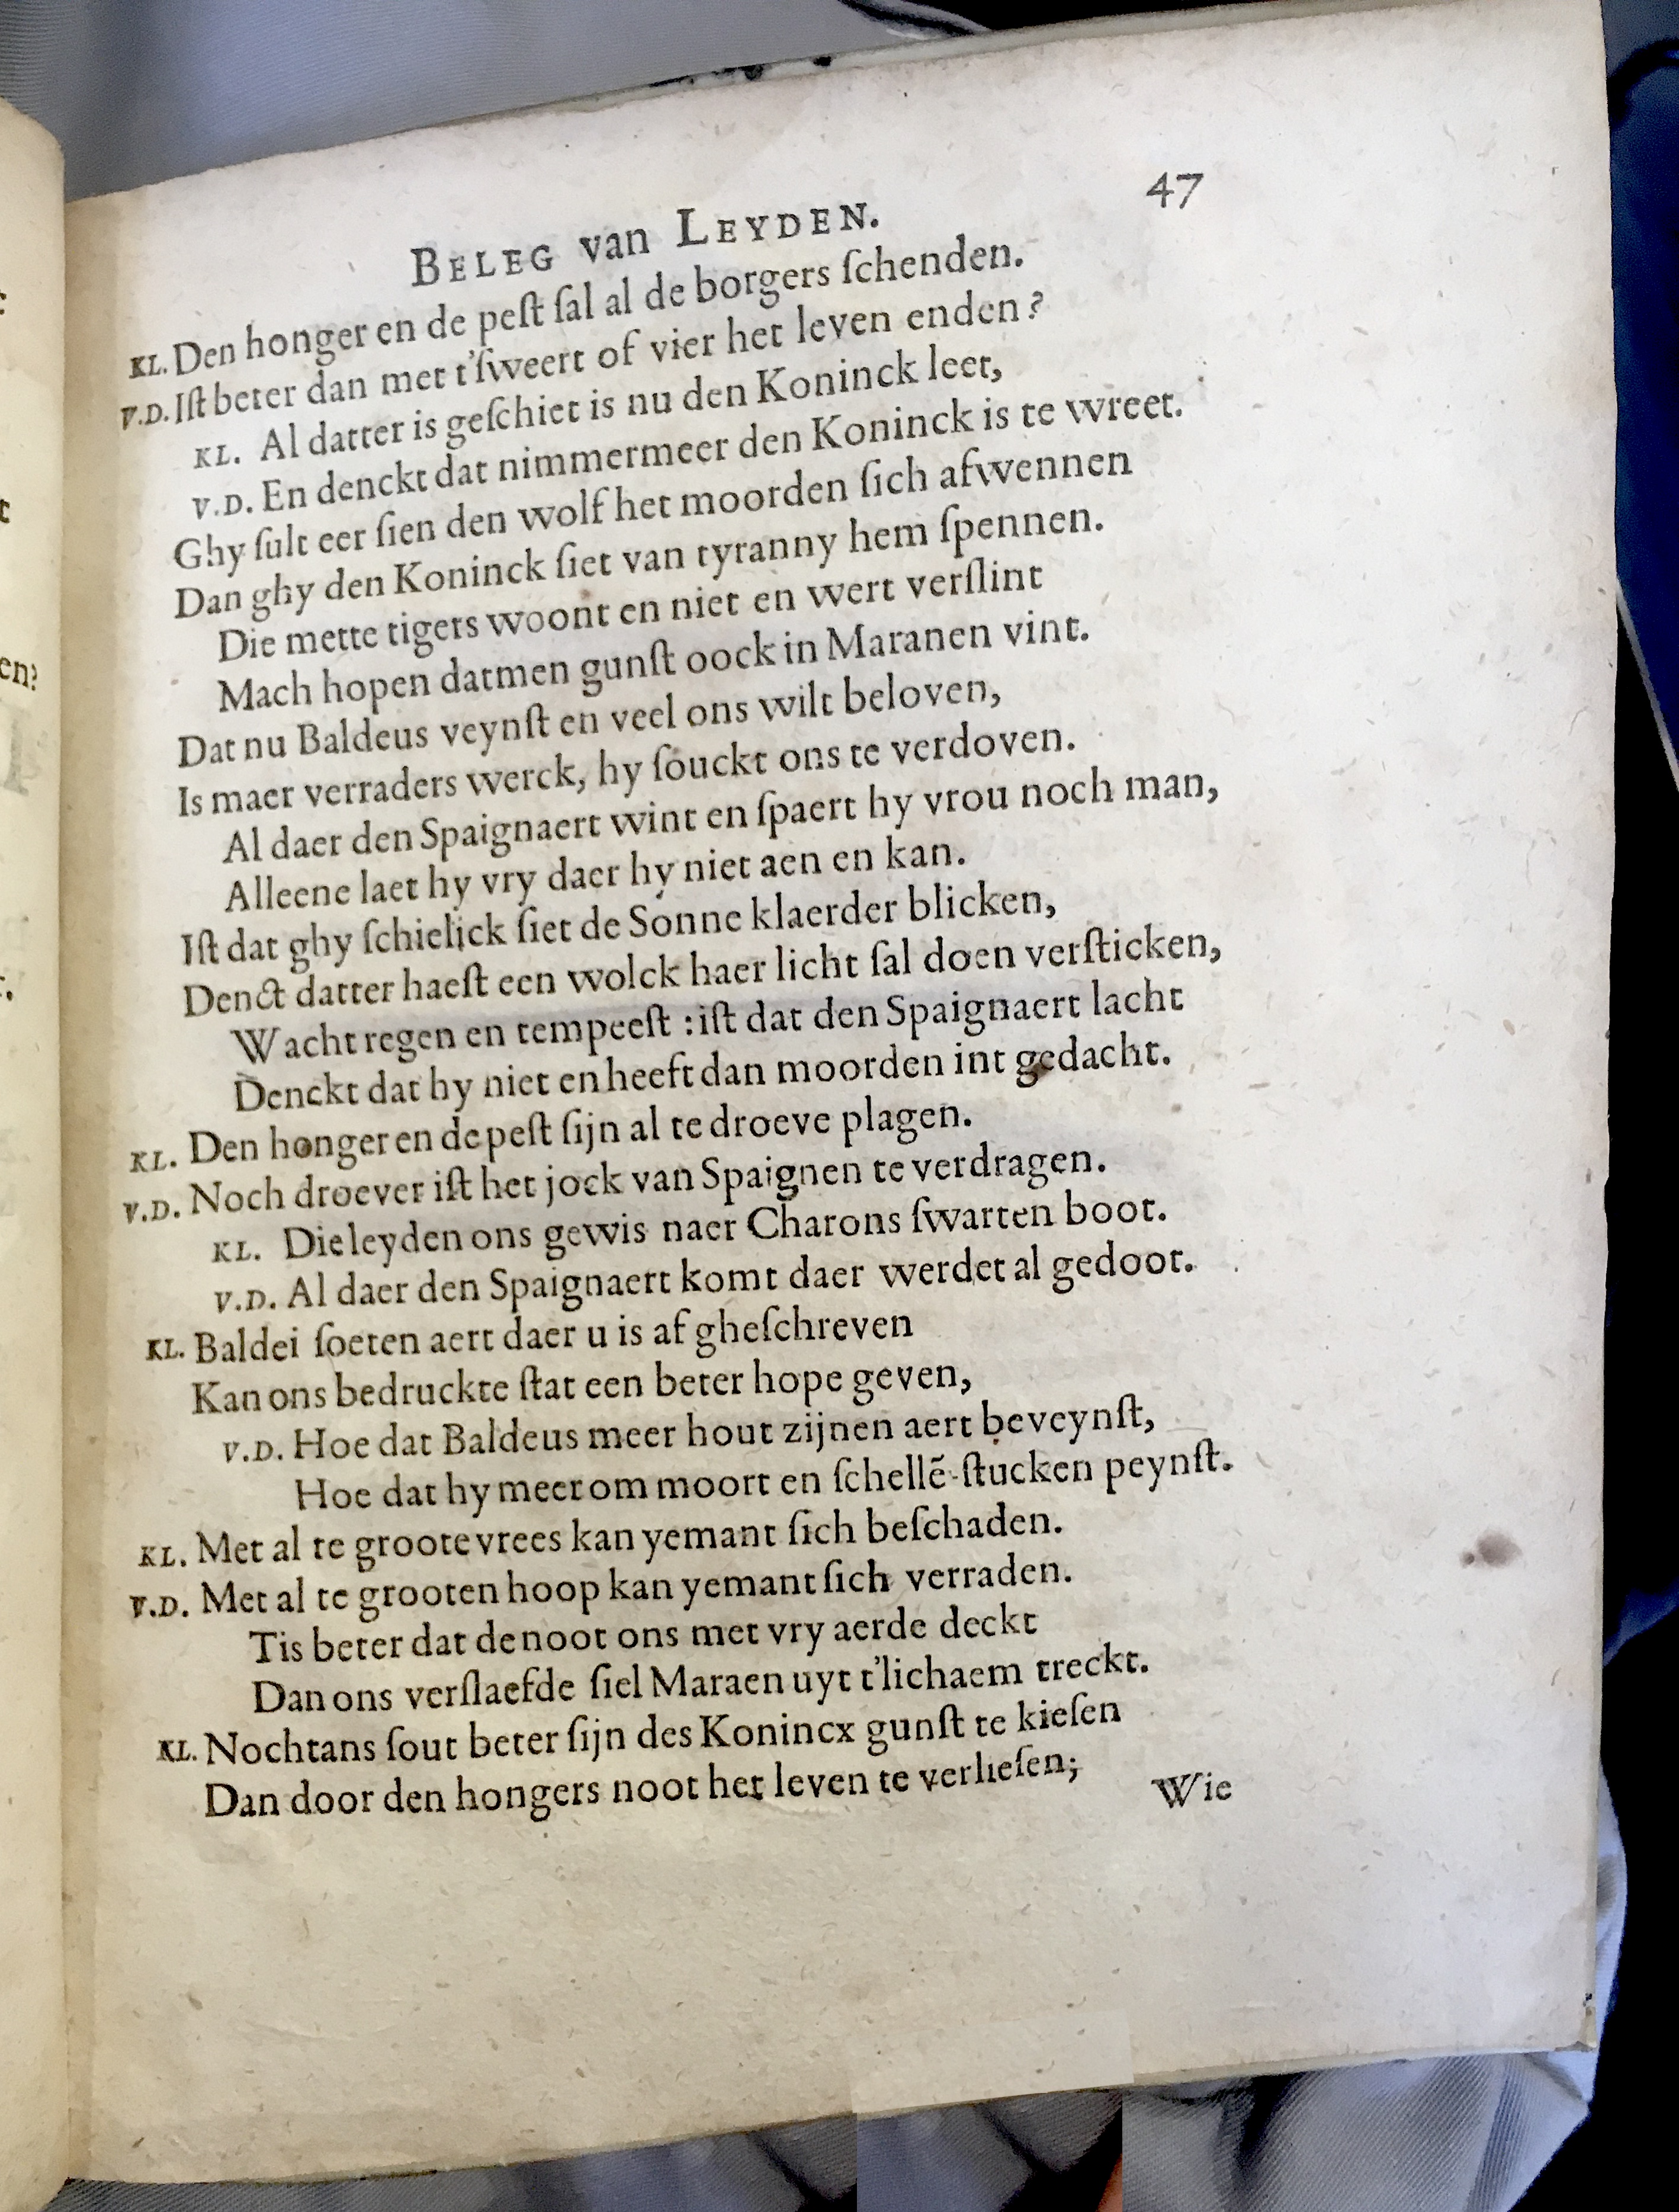 47
BELEG van LEYDEN.
KL. Den honger en de peſt ſal al de borgers ſchenden.
V.D. Iſt beter dan met t'ſweert of vier het leven enden?
KL. Al datter is geſchiet is nu den Koninck leet,
V.D. En denckt dat nimmermeer den Koninck is te wreet.
Ghy ſult eer ſien den wolf het moorden ſich afwennen
Dan ghy den Koninck ſiet van tyranny hem ſpennen.
Die mette tigers woont en niet en wert verſlint
Mach hopen datmen gunſt oock in Maranen vint.
Dat nu Baldeus veynſt en veel ons wilt beloven,
Is maer verraders werck, hy ſouckt ons te verdoven.
Al daer den Spaignaert wint en ſpaert hy vrou noch man,
Alleene laet hy vry daer hy niet aen en kan.
Iſt dat ghy ſchielick ſiet de Sonne klaerder blicken,
Denct datter haeſt een wolck haer licht ſal doen verſticken,
Wacht regen en tempeeſt : iſt dat den Spaignaert lacht
Denckt dat hy niet en heeft dan moorden int gedacht.
KL. Den honger en de peſt ſijn al te droeve plagen.
V.D. Noch droever iſt het jock van Spaignen te verdragen.
KL. Die leyden ons gewis naer Charons ſwarten boot.
V.D. Al daer den Spaignaert komt daer werdet al gedoot.
KL. Baldei ſoeten aert daer u is af gheſchreven
Kan ons bedruckte ſtat een beter hope geven,
V.D. Hoe dat Baldeus meer hout zijnen aert beveynſt,
Hoe dat hy meer om moort en ſchellē-ſtucken peynſt.
KL. Met al te groote vrees kan yemant ſich beſchaden.
V.D. Met al te grooten hoop kan yemant ſich verraden.
Tis beter dat de noot ons met vry aerde deckt
Dan ons verſlaefde ſiel Maraen uyt t'lichaem treckt.
KL. Nochtans ſout beter ſijn des Konincx gunſt te kieſen
Dan door den hongers noot het leven te verlieſen;
Wie
en?